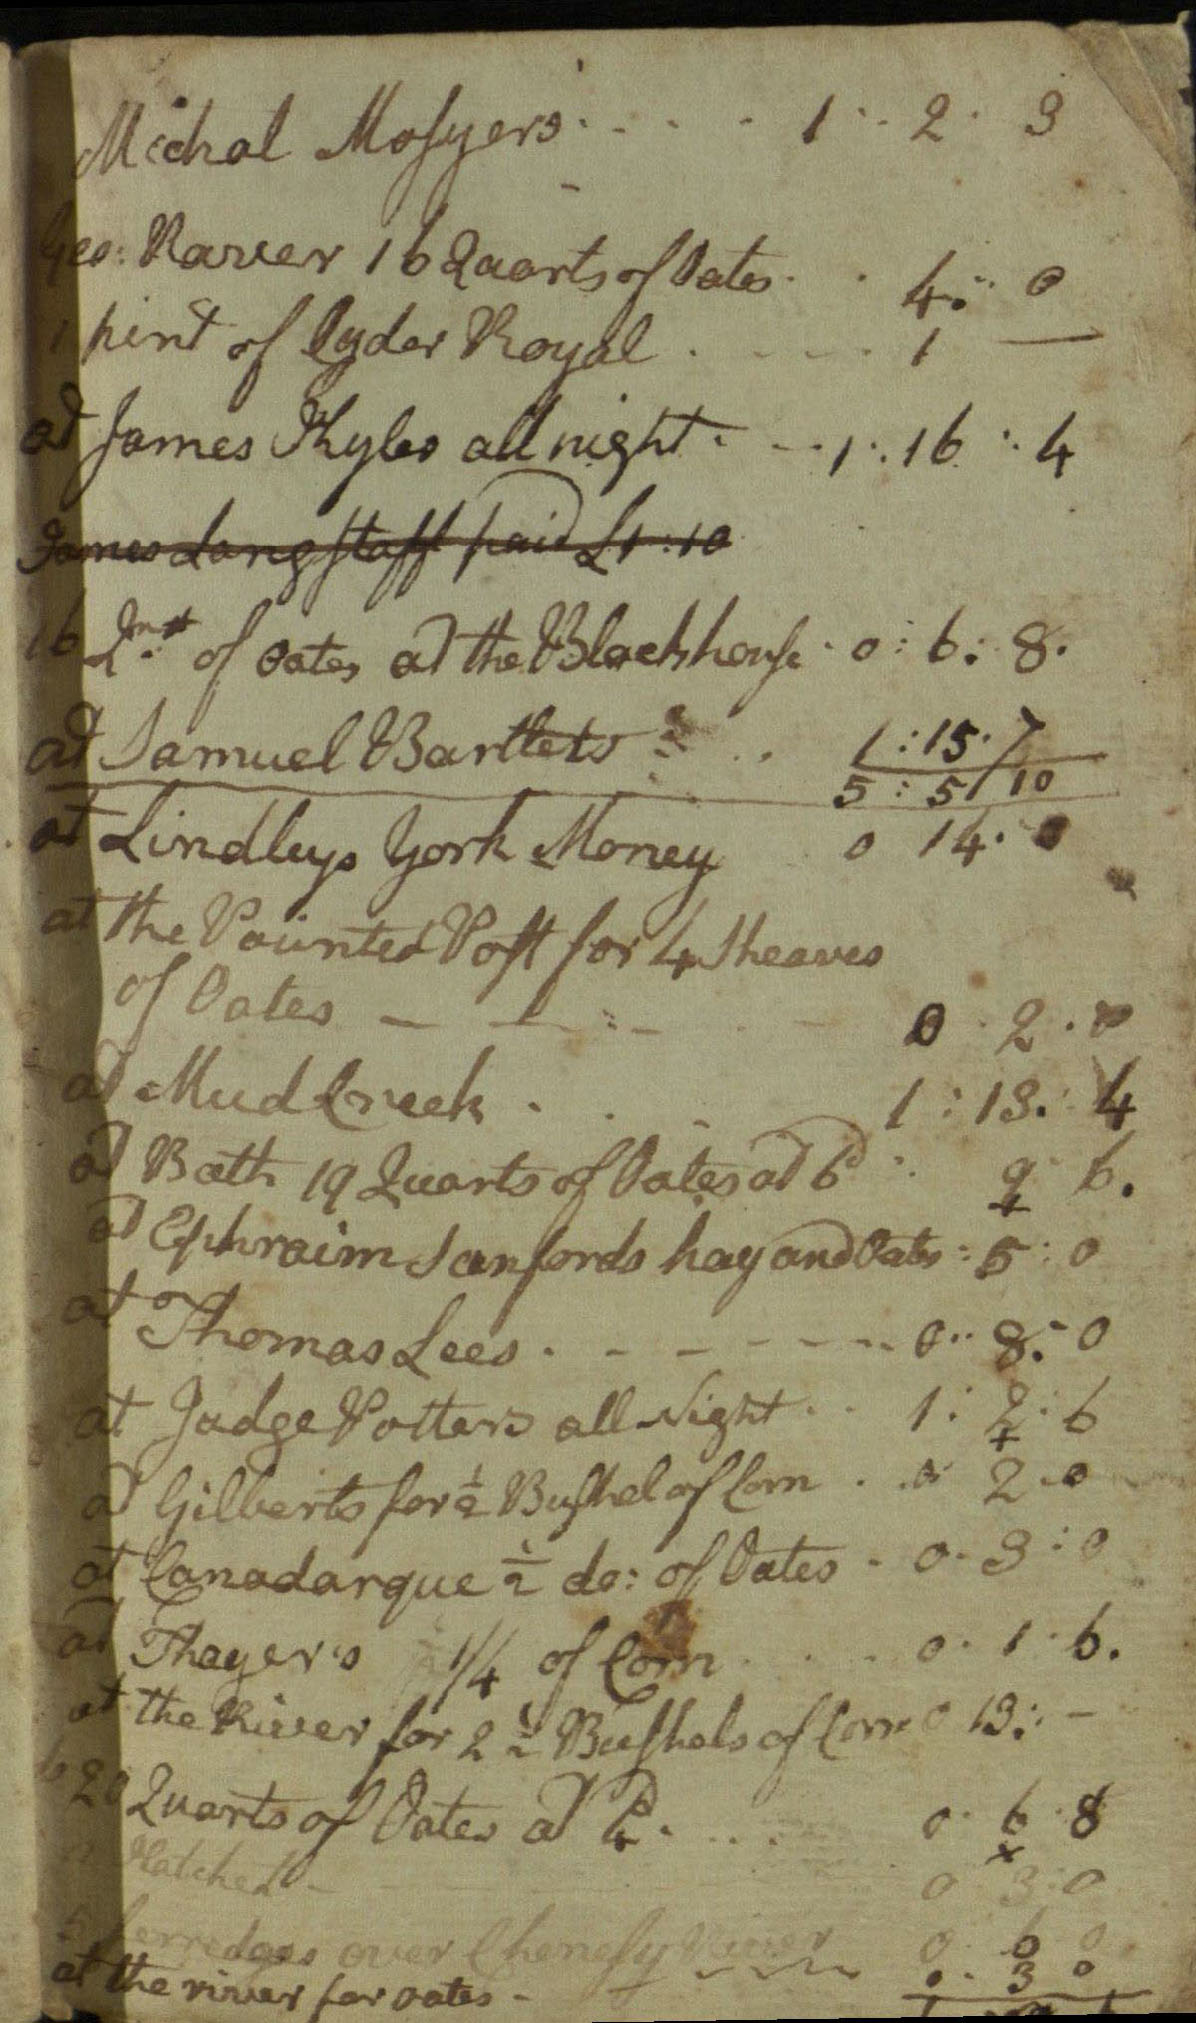 Michal Mosyers . . . . 1 . . 2 . 3
Geo: Raver 16 Quarts of Oates . . 4 : 0
1 pint of Cyder Royal . . . . 1 —
at James Kyles all night . . . 1 : 16 : 4
James Langstaff paid £1 : 10
16 Qrts of Oates at the Blackhouse . 0 : 6 : 8 .
at Samuel Bartlets . . 1 : 15 . 7
5 : 5 / 10
at Lindleys York Money 0 14 . 0
at the Painted Post for 4 Sheaves
of Oates — — — 0 . 2 . 0
at Mud Creek . . . 1 : 13 . 4
at Bath 19 Quarts of Oates at 6d : 9 6 .
at Ephraim Sanfords hay and Oates : 5 : 0
at Thomas Lees . - - - - . 0 . . 8 : 0
at Judge Potters all Night . . 1 : 2 : 6
at Gilberts for ½ Bushel of Corn . . 0 2 . 0
at Canadarque ½ do: of Oates . 0 . 3 : 0
at Thayer's 1/4 of Corn . . . 0 . 1 . 6 .
at the River for 2 ½ Bushels of Corn 0 13 : -
20 Quarts of Oates at 4d . . . . 0 . 6 . 8
Hatchet - 0 3 : 0
ferredges over Chenesy River 0 . 6 0
at the river for oates - 0 . 3 0